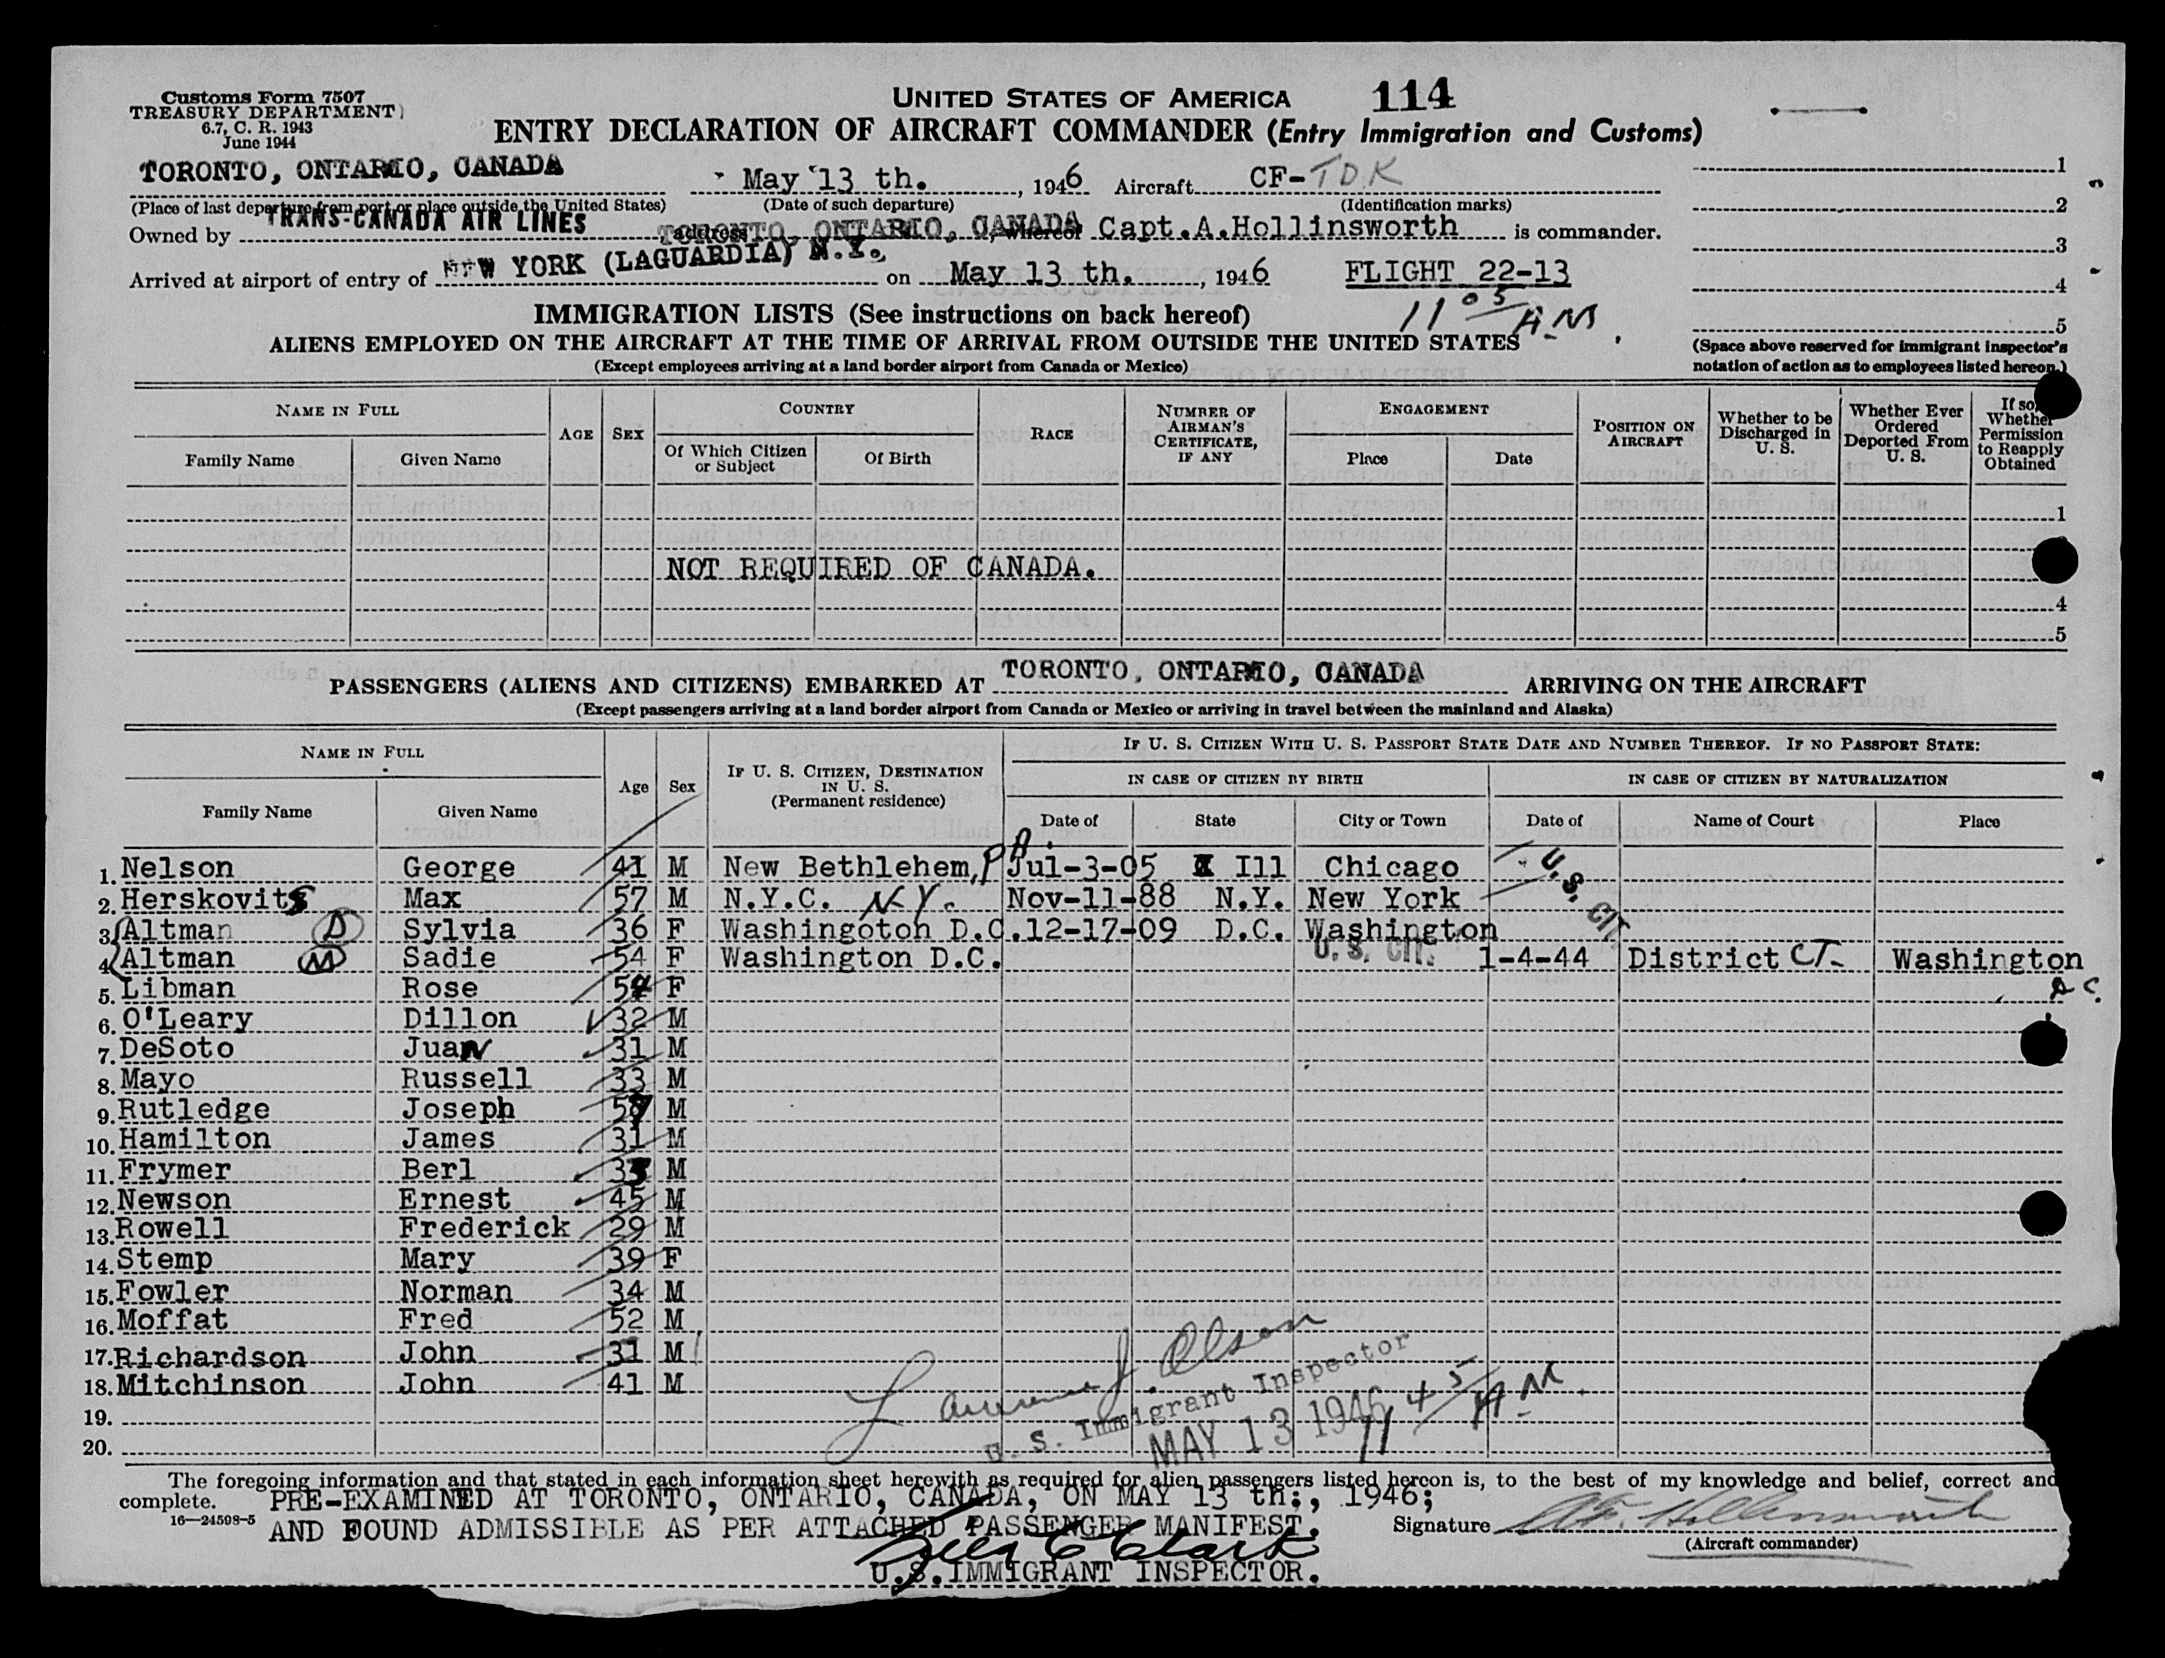 Customs Form 7507
TREASURY DEPARTMENT
6.7, C. R. 1943
June 1944
UNITED STATES OF AMERICA 114
ENTRY DECLARATION OF AIRCRAFT COMMANDER (Entry Immigration and Customs)
TORONTO, ONTARIO, CANADA May 13 th., 1946 Aircraft CF-TDK
(Place of last departure from port or place outside the United States) (Date of such departure) (Identification marks)
Owned by TRANS-CANADA AIR LINES address TORONTO, ONTARIO, CANADA, whereof Capt.A.Hollinsworth is commander.
Arrived at airport of entry of NEW YORK (LAGUARDIA) N.Y. on May 13 th., 1946 FLIGHT 22-13
11 05/AM
1
2
3
4
5
(Space above reserved for immigrant inspector's notation of action as to employees listed hereon.)
IMMIGRATION LISTS (See instructions on back hereof)
ALIENS EMPLOYED ON THE AIRCRAFT AT THE TIME OF ARRIVAL FROM OUTSIDE THE UNITED STATES
(Except employees arriving at a land border airport from Canada or Mexico)
NAME IN FULL AGE SEX COUNTRY RACE NUMBER OF AIRMAN'S CERTIFICATE, IF ANY ENGAGEMENT POSITION ON AIRCRAFT Whether to be Discharged in U. S. Whether Ever Ordered Deported From U. S. If so, Whether Permission to Reapply Obtained
Family Name Given Name Of Which Citizen or Subject Of Birth Place Date
1
NOT REQUIRED OF CANADA.
4
5
PASSENGERS (ALIENS AND CITIZENS) EMBARKED AT TORONTO, ONTARIO, CANADA ARRIVING ON THE AIRCRAFT
(Except passengers arriving at a land border airport from Canada or Mexico or arriving in travel between the mainland and Alaska)
NAME IN FULL Age Sex IF U. S. CITIZEN, DESTINATION IN U. S. (Permanent residence) IF U. S. CITIZEN WITH U. S. PASSPORT STATE DATE AND NUMBER THEREOF. IF NO PASSPORT STATE:
IN CASE OF CITIZEN BY BIRTH IN CASE OF CITIZEN BY NATURALIZATION
Family Name Given Name Date of State City or Town Date of Name of Court Place
1. Nelson George 41 M New Bethlehem, PA. Jul-3-05 Ill Chicago U.S. CIT.
2. Herskovits Max 57 M N.Y.C. N.Y. Nov-11-88 N.Y. New York
3. Altman D Sylvia 36 F Washingotoh D.C. 12-17-09 D.C. Washington
4. Altman M Sadie 54 F Washington D.C. U.S. CIT. 1-4-44 District CT. Washington D.C.
5. Libman Rose 54 F
6. O'Leary Dillon 32 M
7. DeSoto Juan 31 M
8. Mayo Russell 33 M
9. Rutledge Joseph 57 M
10. Hamilton James 31 M
11. Frymer Berl 33 M
12. Newson Ernest 45 M
13. Rowell Frederick 29 M
14. Stemp Mary 39 F
15. Fowler Norman 34 M
16. Moffat Fred 52 M
17. Richardson John 31 M
18. Mitchinson John 41 M
19.
20.
Lawrence J. Olson
U. S. Immigrant Inspector
MAY 13 1946 11 45/AM.
The foregoing information and that stated in each information sheet herewith as required for alien passengers listed hereon is, to the best of my knowledge and belief, correct and
complete. PRE-EXAMINED AT TORONTO, ONTARIO, CANADA, ON MAY 13 th:, 1946;
16—24598-5 AND FOUND ADMISSIBLE AS PER ATTACHED PASSENGER MANIFEST. Signature
(Aircraft commander)
U.S.IMMIGRANT INSPECTOR.